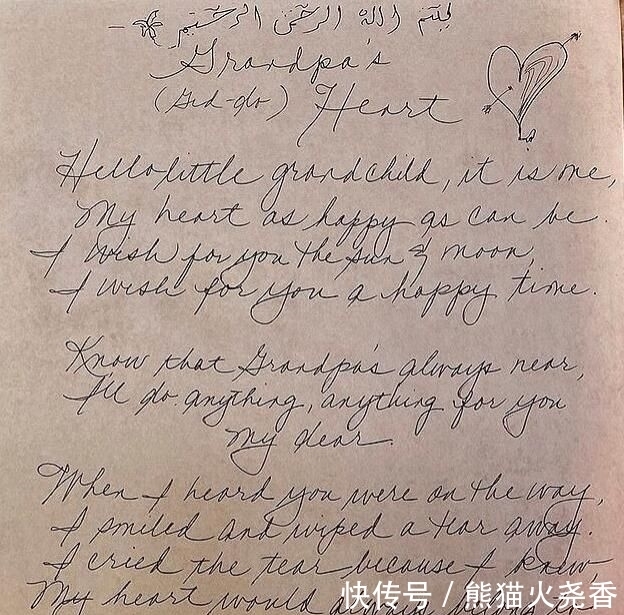 بسم الله الرحمن الرحيم
Grandpa's
(Gid-do) Heart
Hello little grandchild, it is me,
My heart as happy as can be.
I wish for you the sun & moon,
I wish for you a happy time.
Know that Grandpa's always near,
I'll do anything, anything for you
my dear.
When I heard you were on the way,
I smiled and wiped a tear away.
I cried the tear because I knew
My heart would always
快传号 / 熊猫火尧香